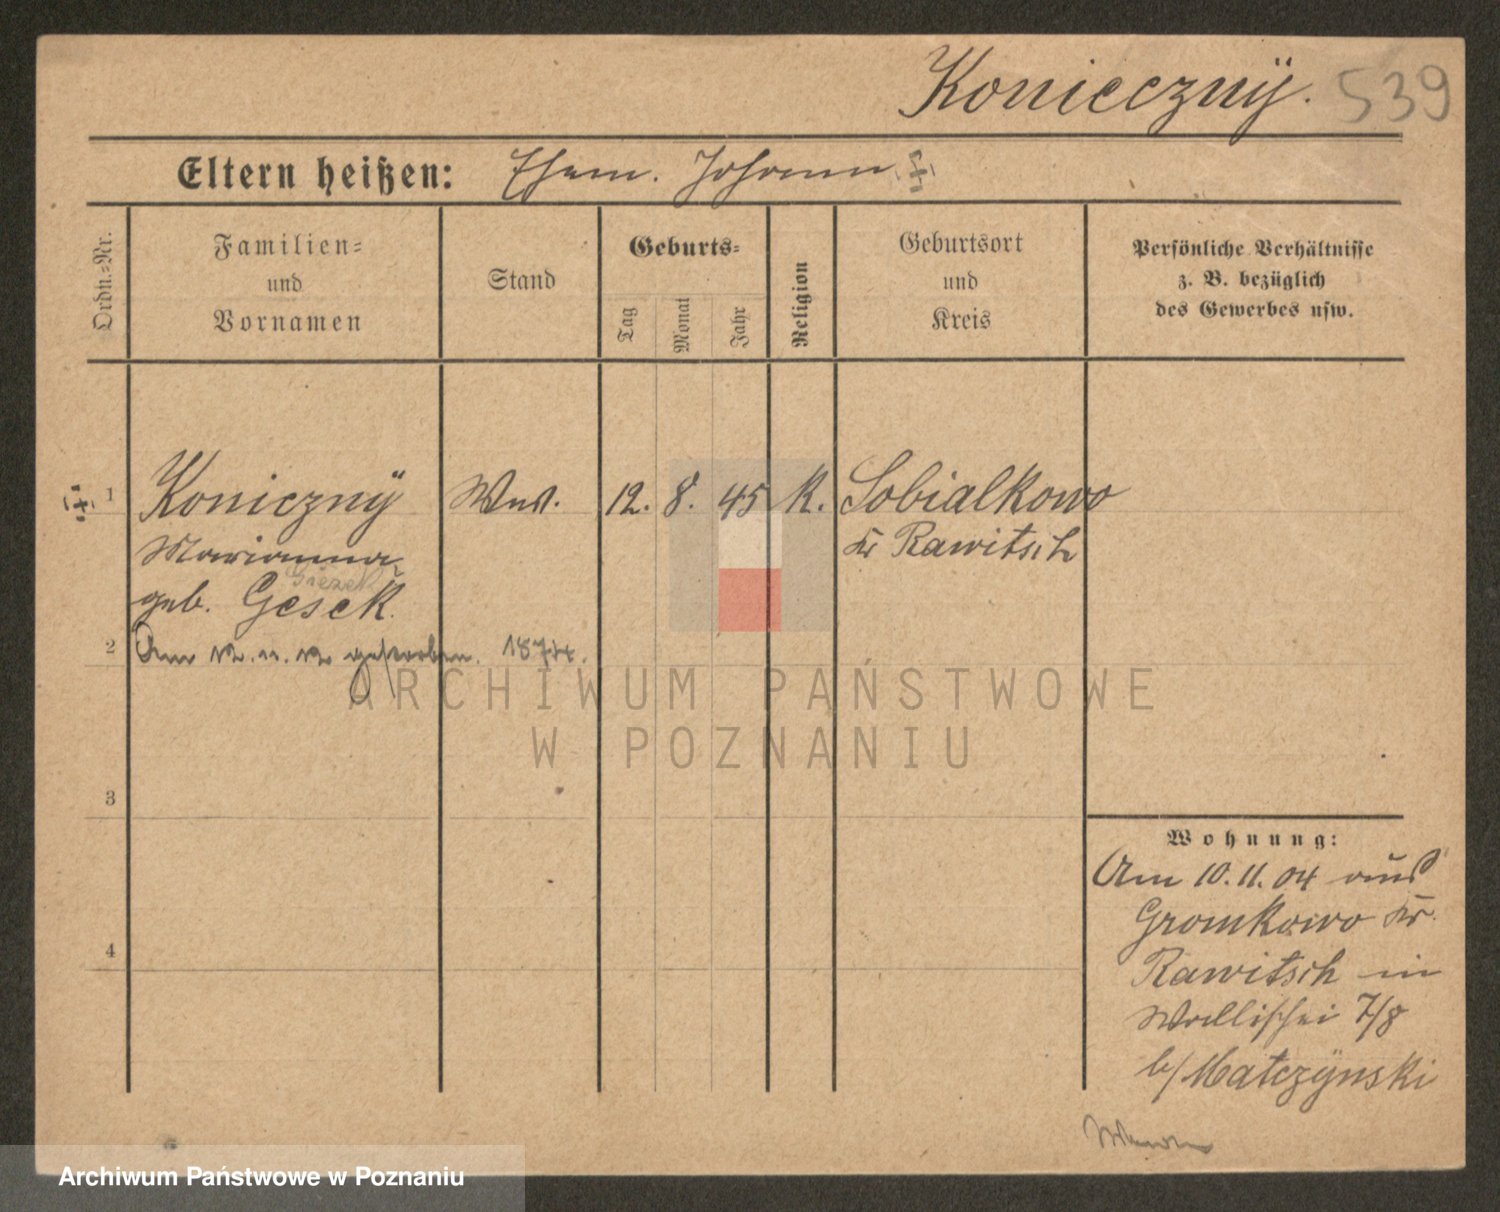 Koniecznÿ. 539
Eltern heißen: Ehem. Johann
Ordn.=Nr.
Familien=
und
Vornamen
Stand
Geburts=
Tag
Monat
Jahr
Religion
Geburtsort
und
Kreis
Persönliche Verhältnisse
z. B. bezüglich
des Gewerbes usw.
1 Konicznÿ Ww. 12. 8. 45 K. Sobialkowo
Marianna Kr Rawitsch
Giezek
geb. Gesek.
2 Am gestorben.
3
4
Wohnung:
Am 10.11.04 aus
Gromkowo Kr.
Rawitsch in
Wallischei 7/8
b/ Matczÿnski
ARCHIWUM PAŃSTWOWE
W POZNANIU
Archiwum Państwowe w Poznaniu